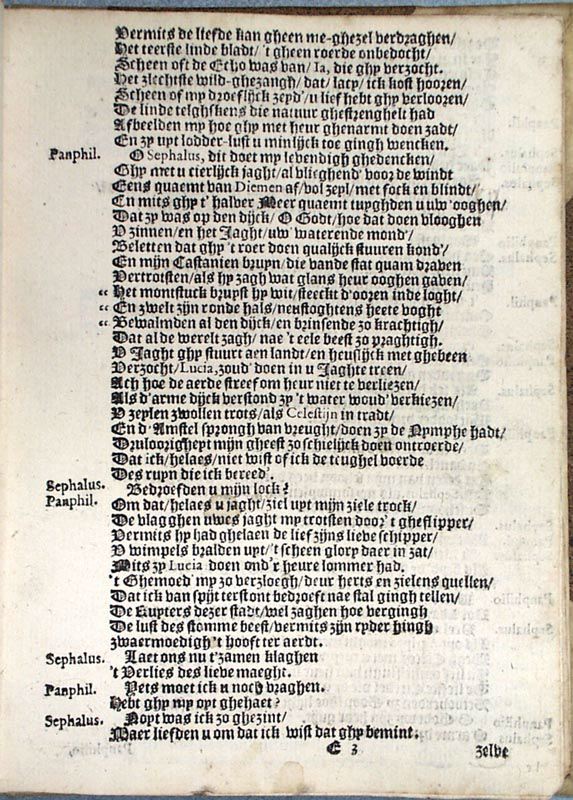 Vermits de liefde kan gheen me-ghezel verdzaghen/
Het teerste linde bladt/ 't gheen roerde onbedocht/
Scheen oft de Echo was van/ Ia, die ghy verzocht.
Het zlechtste wild-ghezangh/ dat/ lacy/ ick kost hooren/
Scheen of my droeflijck zeyd' u lief hebt ghy verlooren/
De linde telghskens die natuur ghestrenghelt had
Afbeelden my hoe ghy met heur ghenarmt doen zadt/
En zy upt lodder-lust u minlijck toe gingh wencken.
Panphil. O Sephalus, dit doet my levendigh ghedencken/
Ghy met u cierlijck jaght/ al vlieghend' voor de windt
Eens quaemt van Diemen af/ vol zeyl/ met fock en blindt/
En mits ghy t' halver Meer quaemt tuyghden u uw' ooghen/
Dat zy was op den dijck/ O Godt/ hoe dat doen vlooghen
V zinnen/ en het Jaght/ uw' waterende mond'/
Beletten dat ghy 't roer doen qualijck stuuren kond'/
En mijn Castanien bruyn/ die vande stat quam draven
Vertrotsten/ als hy zagh wat glans heur ooghen gaven/
“ Het montstuck bruyst hy wit/ steeckt d'ooren inde loght/
“ En zwelt zijn ronde hals/ neustoghtens heete voght
“ Bewalmden al den dijck/ en brinsende zo krachtigh/
Dat al de werelt zagh/ nae 't eele beest zo praghtigh.
V Jaght ghy stuurt aen landt/ en heuslijck met ghebeen
Verzocht/ Lucia, zoud' doen in u Jaghte treen/
Ach hoe de aerde streef om heur niet te verliezen/
Als d'arme dijck verstond zy 't water woud' verkiezen/
V zeylen zwollen trots/ als Celestijn in tradt/
En d' Amstel sprongh van vreught/ doen zy de Nymphe hadt/
Druloorigheyt mijn gheest zo schielijck doen ontroerde/
Dat ick/ helaes/ niet wist of ick de teughel voerde
Des ruyn die ick bereed'.
Sephalus. Bedroefden u mijn lock?
Panphil. Om dat/ helaes u jaght/ ziel uyt mijn ziele trock/
De vlagghen uwes jaght my trotsten door 't gheflipper/
Vermits hy had ghelaen de lief zijns lieve schipper/
V wimpels bralden uyt/ 't scheen glory daer in zat/
Mits zy Lucia doen ond'r heure lommer had.
't Ghemoed' my zo verzloegh/ deur herts en zielens quellen/
Dat ick van spijt terstont bedroeft nae stal gingh tellen/
De Kuyters dezer stadt/ wel zaghen hoe verghingh
De lust des stomme beest/ vermits zijn ryder hingh
zwaermoedigh 't hooft ter aerdt.
Sephalus. Laet ons nu t'zamen klaghen
't Verlies des lieve maeght.
Panphil. Yets moet ick u noch vraghen.
Hebt ghy my oyt ghehaet?
Sephalus. Noyt was ick zo ghezint/
Maer liefden u om dat ick wist dat ghy bemint.
E 3 zelve